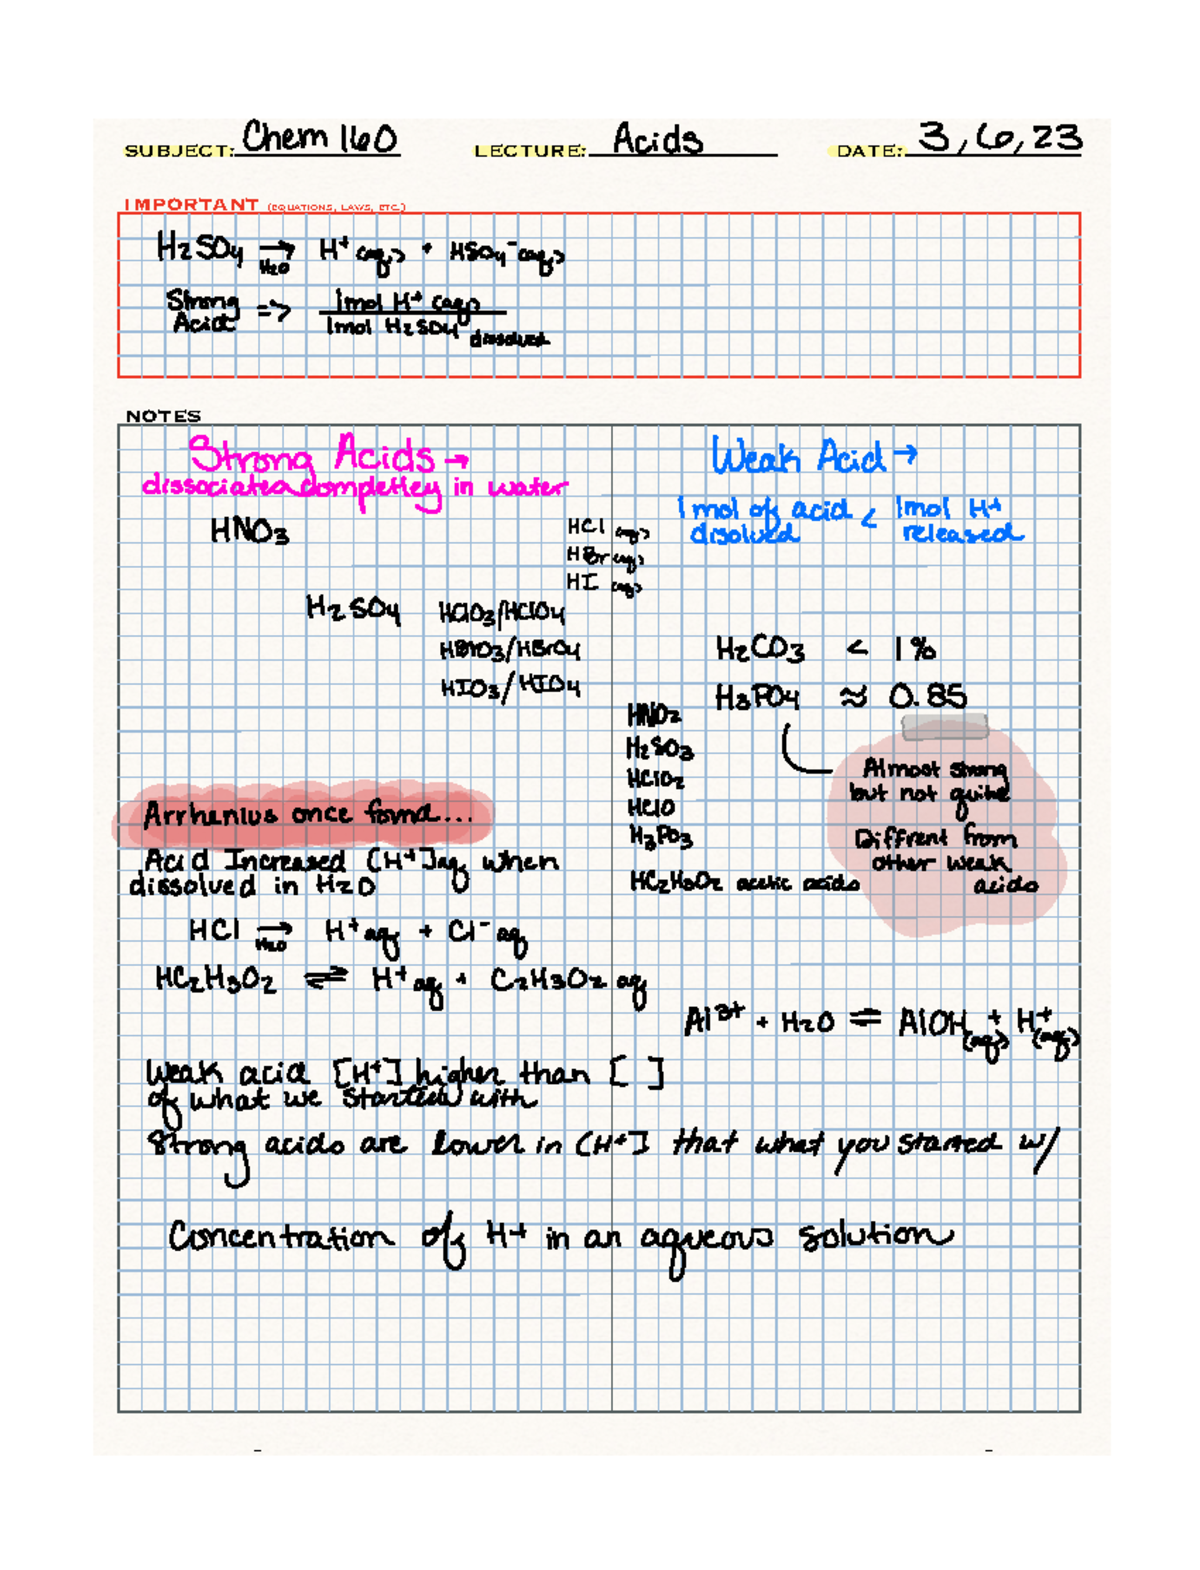 SUBJECT: Chem 160 LECTURE: Acids DATE: 3,6,23
IMPORTANT (EQUATIONS, LAWS, ETC.)
H2SO4 →H2O H+ (aq) + HSO4- (aq)
Strong Acid => 1mol H+ (aq) / 1mol H2SO4 dissolved
NOTES
Strong Acids →
dissociates completley in water
HNO3
HCl (aq)
HBr (aq)
HI (aq)
H2SO4 HClO3/HClO4
HBrO3/HBrO4
HIO3/HIO4
Arrhenius once found...
Acid Increased [H+]aq when
dissolved in H2O
HCl →H2O H+ aq + Cl- aq
HC2H3O2 ⇌ H+ aq + C2H3O2 aq
Weak Acid →
1 mol of acid < 1mol H+
disolved released
H2CO3 < 1%
H3PO4 ≈ 0.85
HNO2
H2SO3
HClO2
HClO
H3PO3
HC2H3O2 acetic acids
Almost strong
but not quite
Diffrent from
other weak
acids
Al3+ + H2O ⇌ AlOH (aq) + H+ (aq)
Weak acid [H+] higher than [ ]
of what we started with
Strong acids are lower in [H+] that what you started w/
Concentration of H+ in an aqueous solution